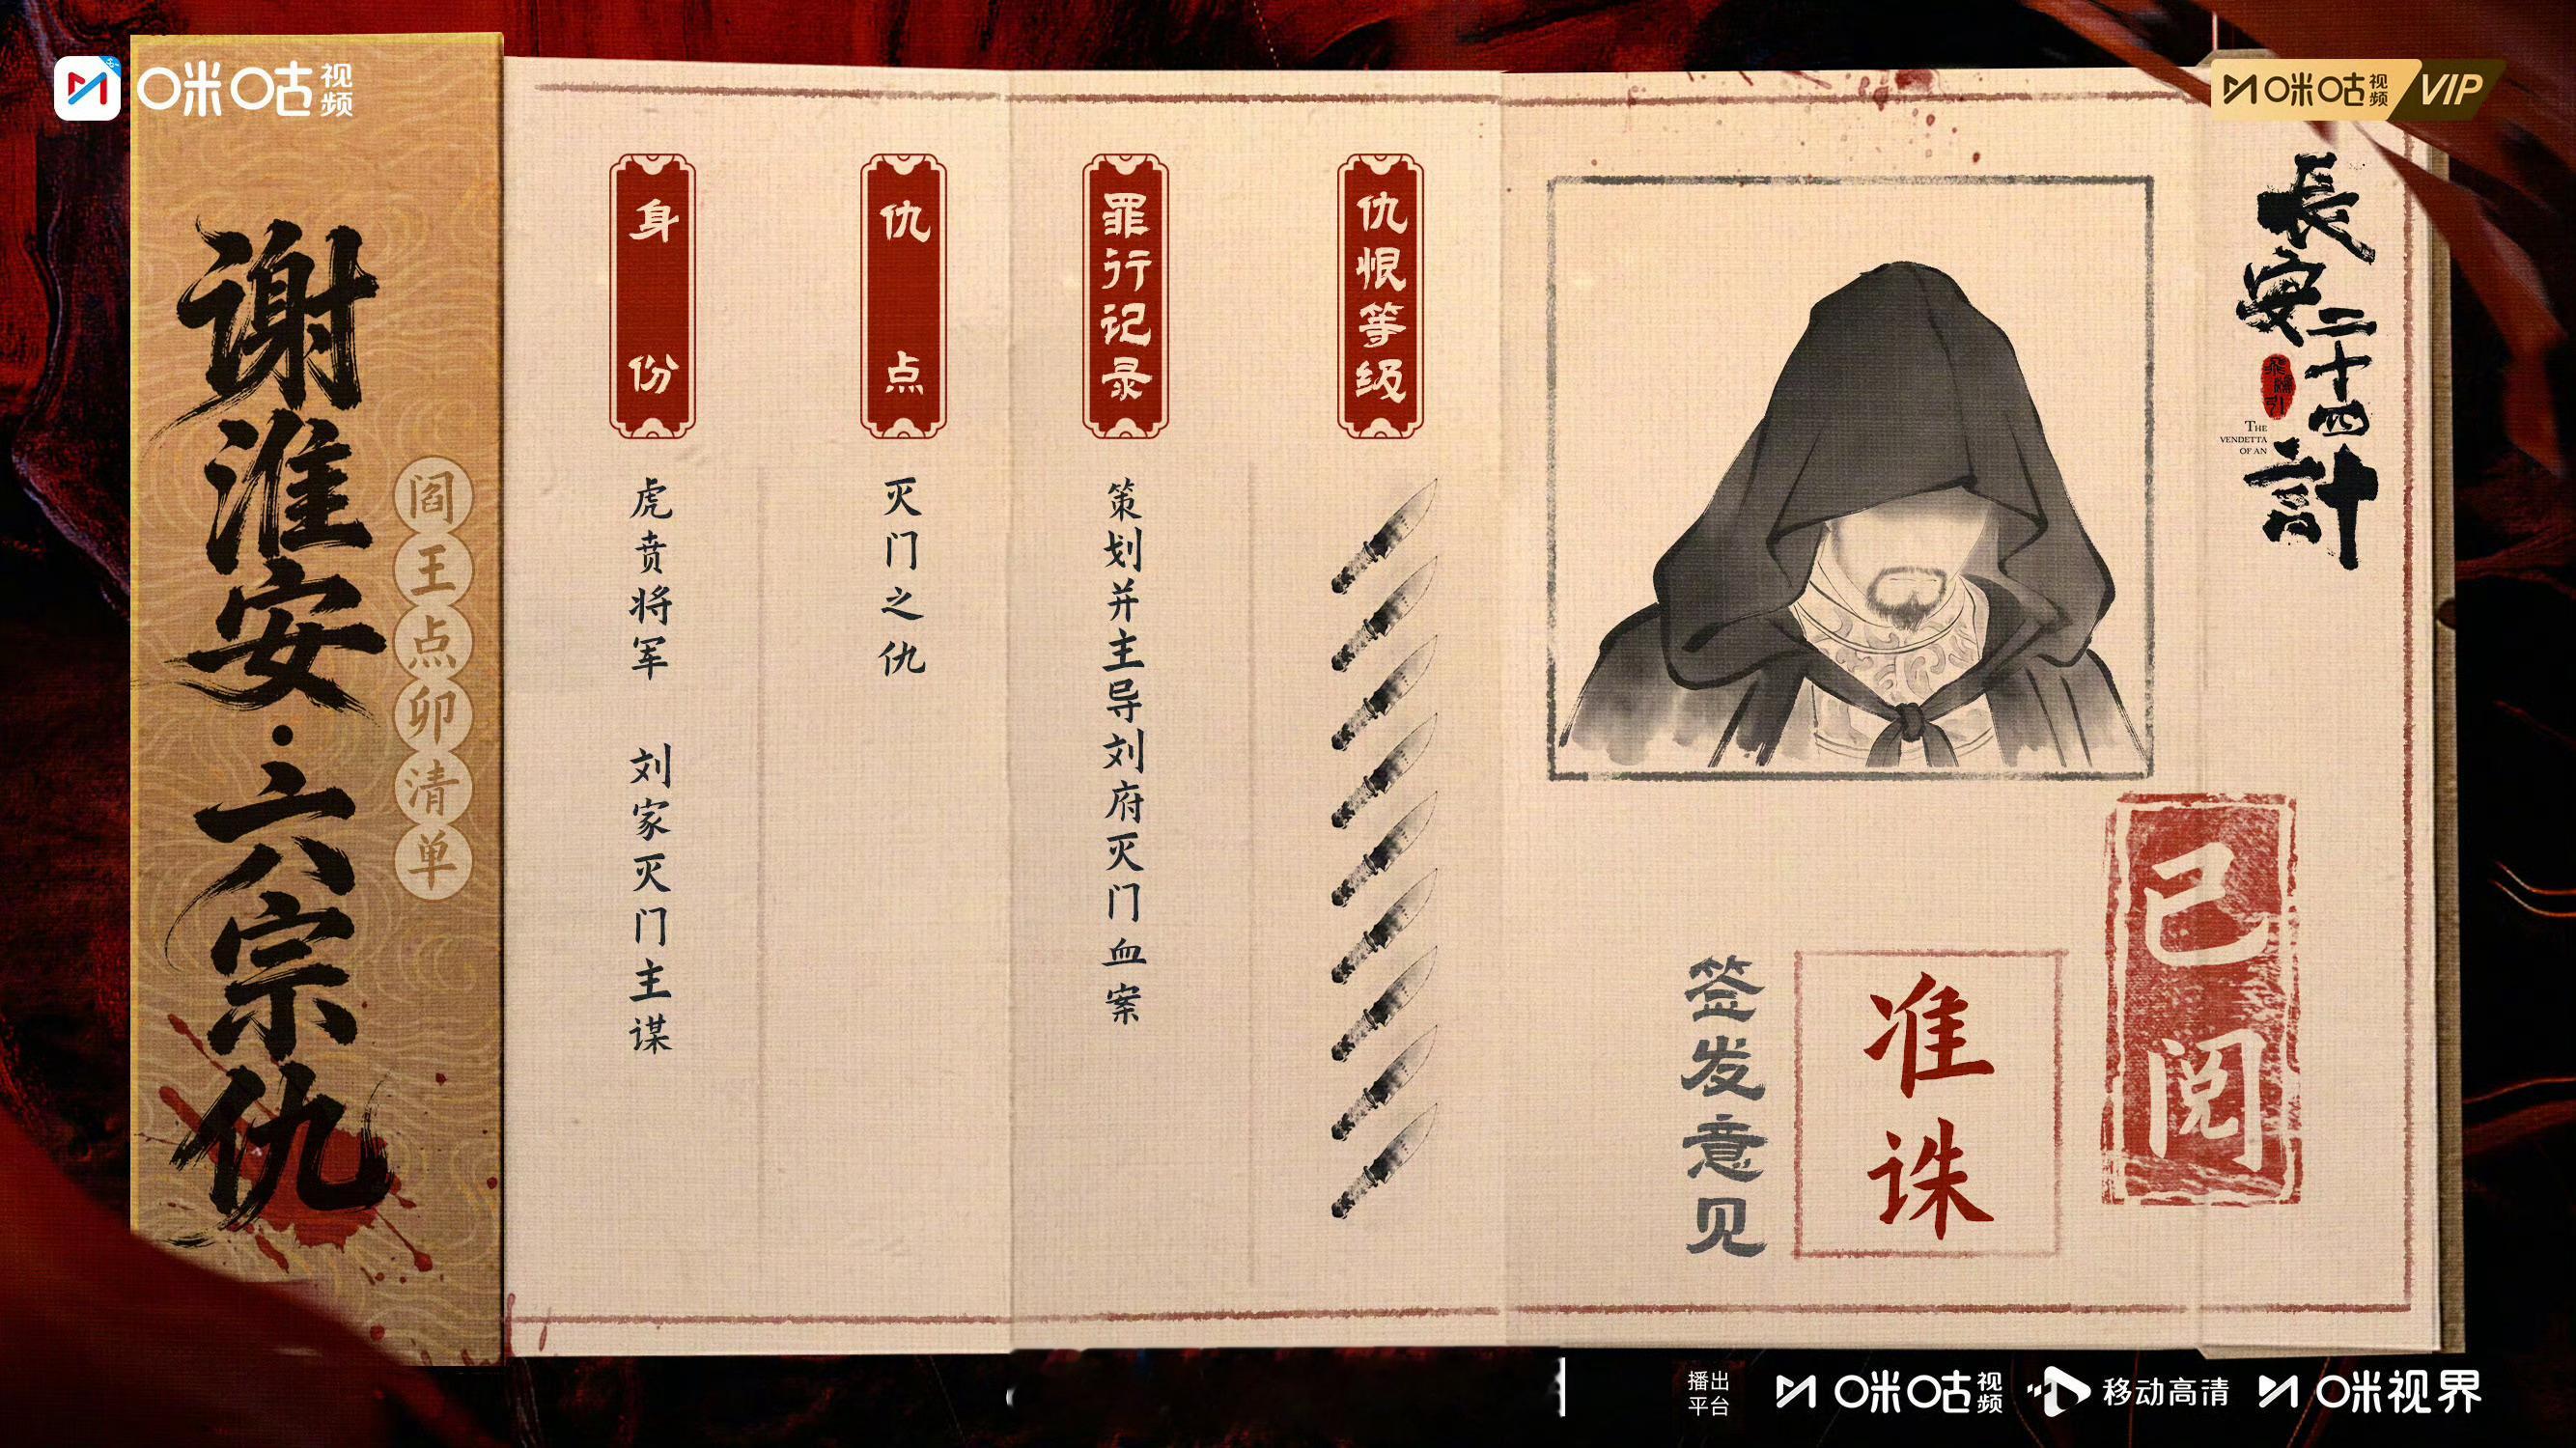 咪咕视频
咪咕视频 VIP
谢淮安·六宗仇
阎王点卯清单
身份
虎贲将军 刘家灭门主谋
仇点
灭门之仇
罪行记录
策划并主导刘府灭门血案
仇恨等级
長安二十四計
THE
VENDETTA
OF AN
签发意见
准诛
已阅
播出
平台
咪咕视频
移动高清
咪视界